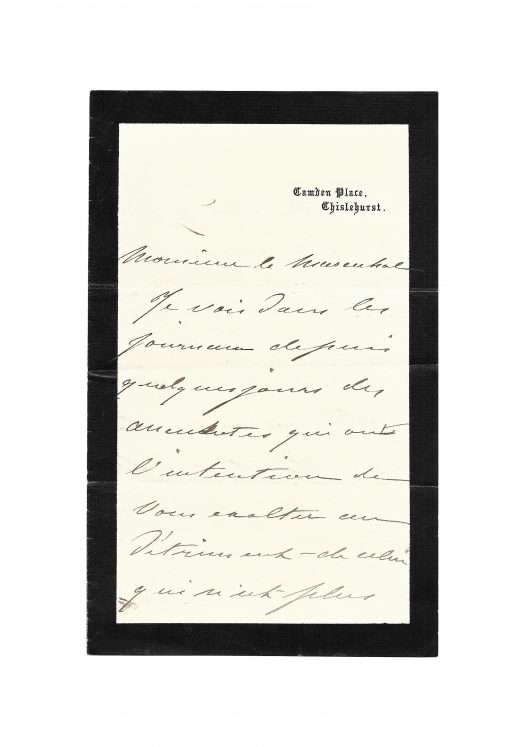 Camden Place,
Chislehurst.
Monsieur le Marechal
Je vois dans les
journaux depuis
quelques jours des
anecdotes qui ont
l'intention de
vous exalter au
détriment de celui
qui n'est plus